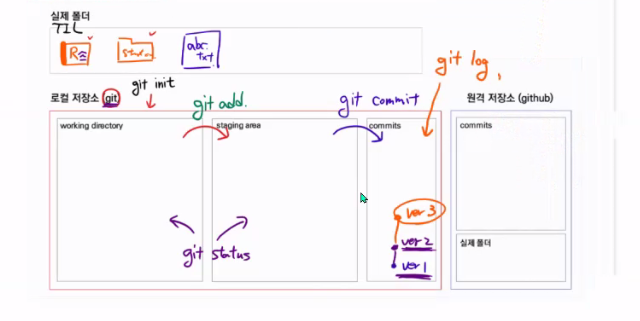 실제 폴더
TIL
R
abc.
txt
git log,
git init
로컬 저장소 git
git add.
git commit
원격 저장소 (github)
working directory
staging area
commits
commits
ver 3
ver 2
ver 1
git status
실제 폴더